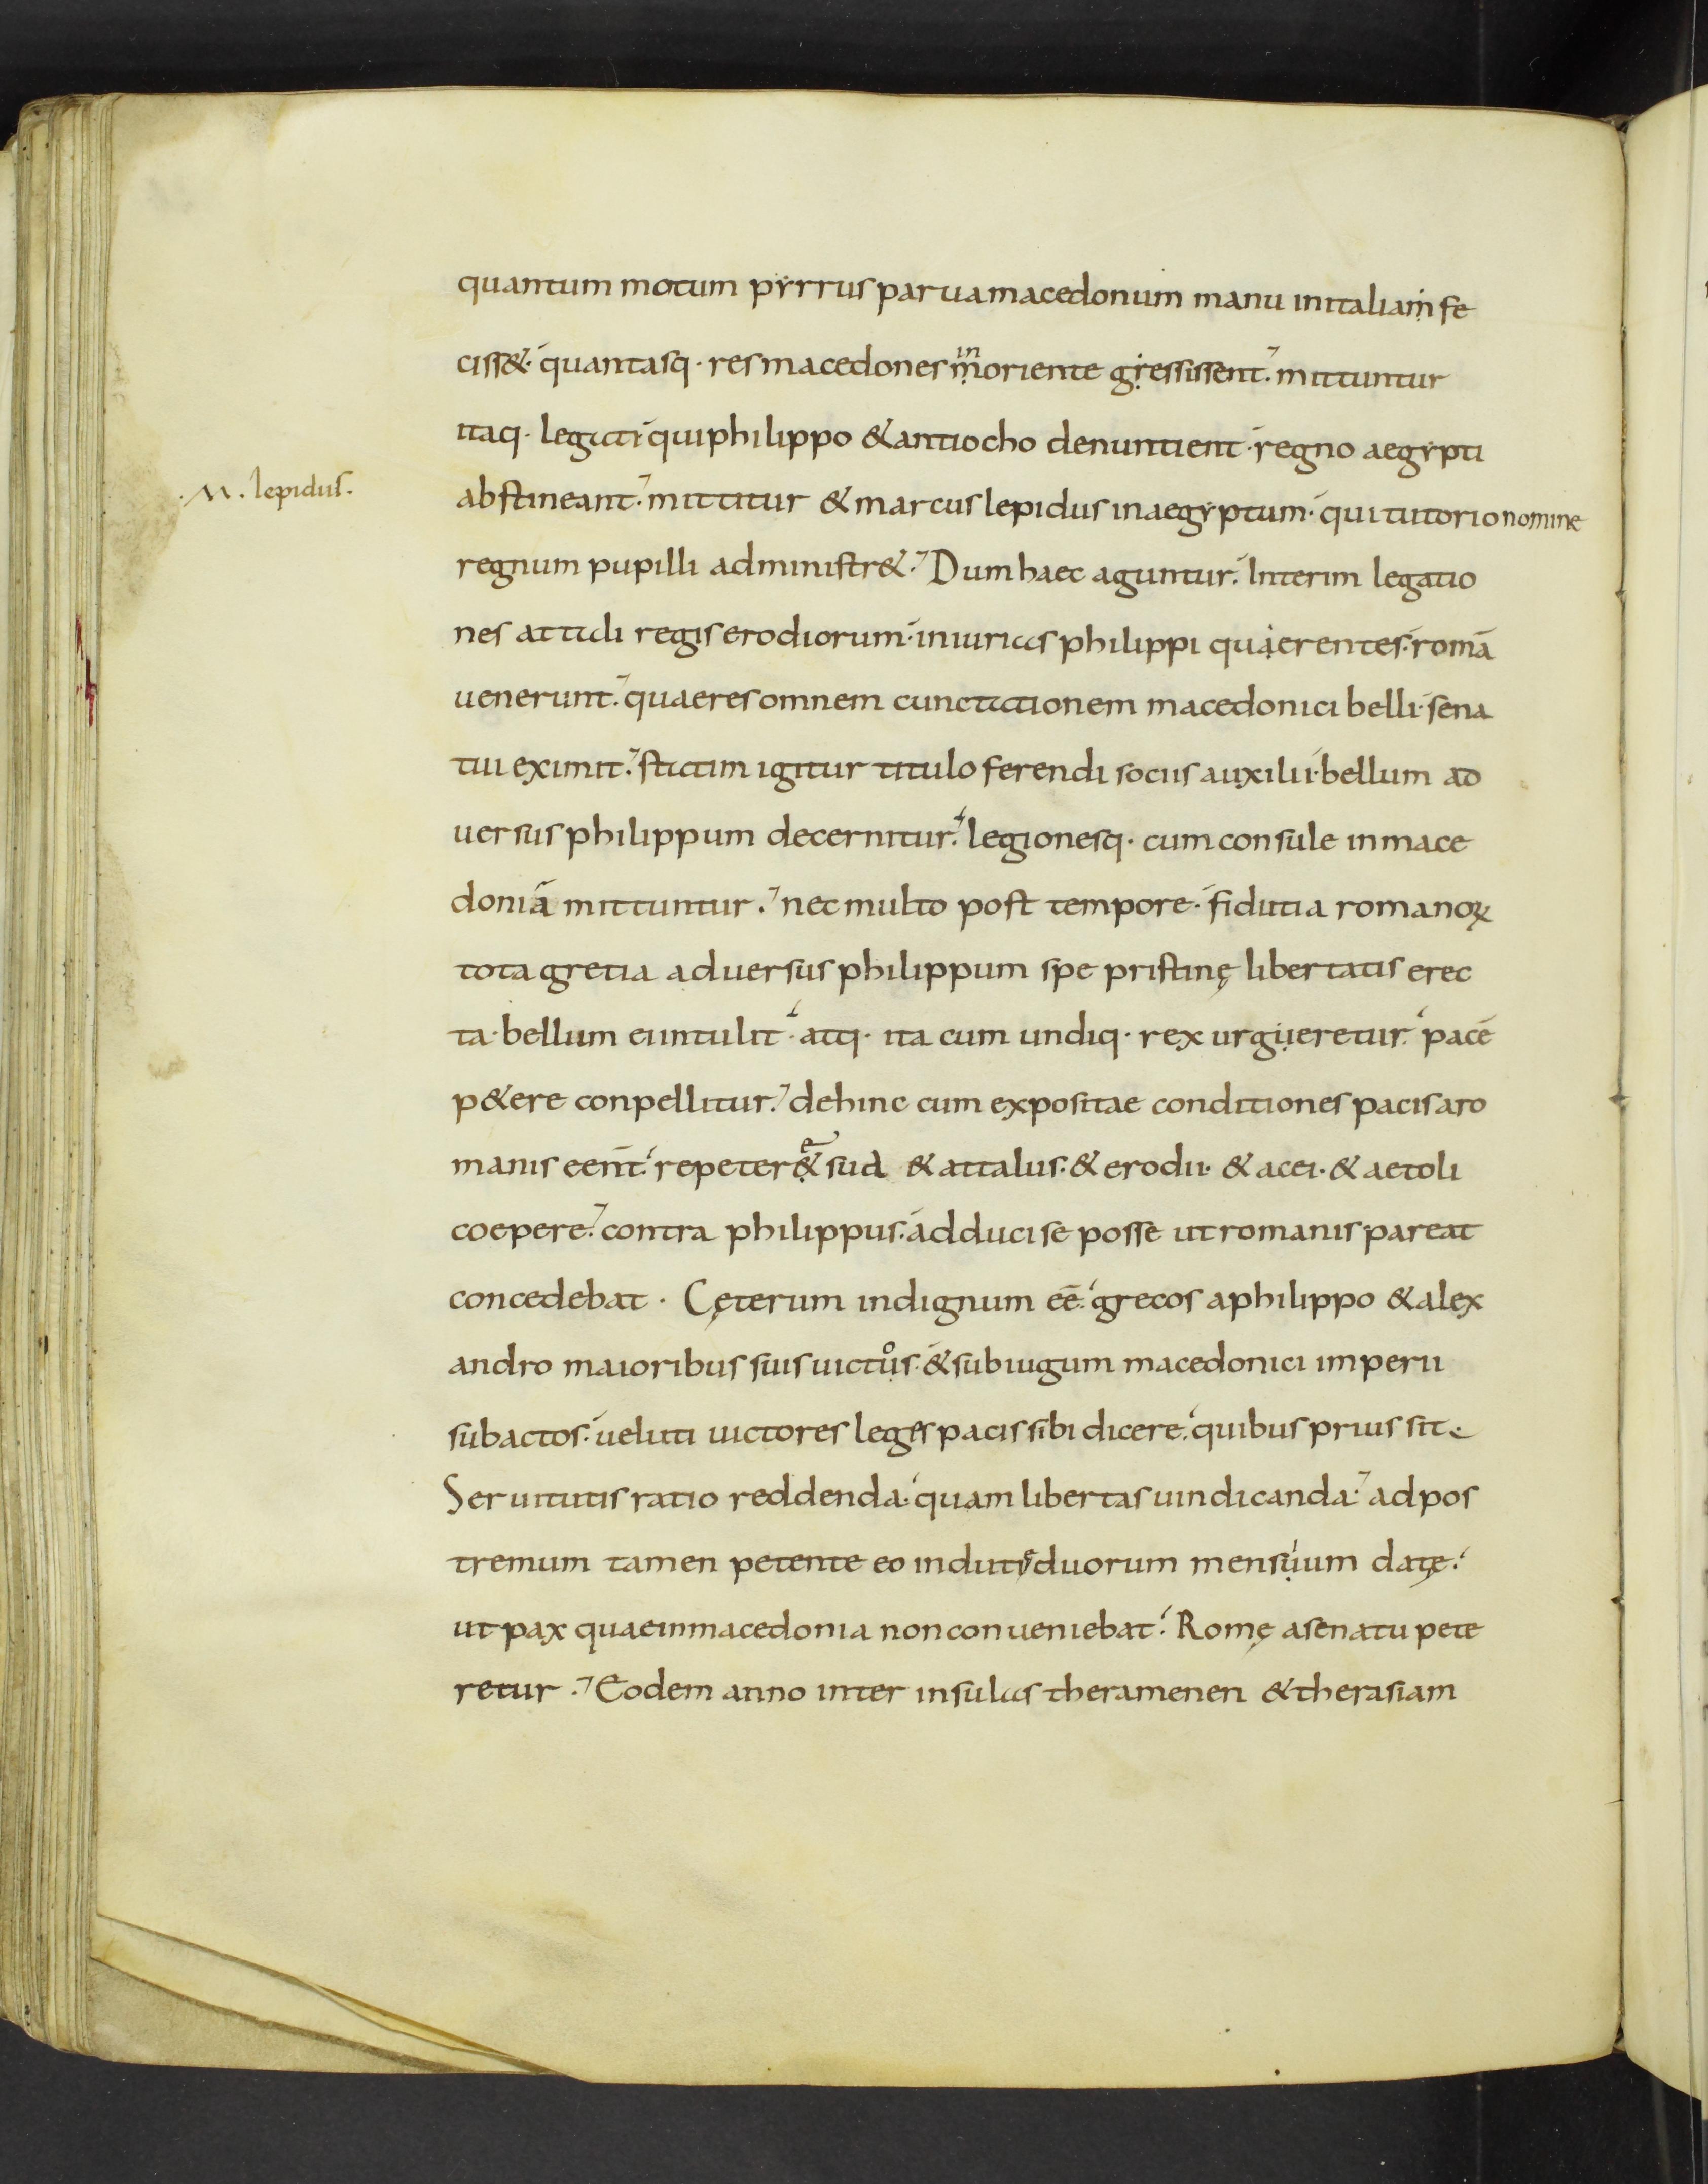 quantum motum pyrrus parua macedonum manu in italiam fe
ciss&. quantasq· res macedones in oriente gressissent. mittuntur
itaq· legati qui philippo & antiocho denuntient. regno aegypti
·M· lepidus.
abstineant. mittitur & marcus lepidus in aegyptum. qui tutorio nomine
regnum pupilli administr&. Dum haec aguntur. Interim legatio
nes attali regis erodiorum. iniurias philippi quaerentes. romā
uenerunt. quae res omnem cunctationem macedonici belli. sena
tui eximit. statim igitur titulo ferendi sociis auxilii. bellum ad
uersus philippum decernitur. legionesq· cum consule in mace
doniā mittuntur. nec multo post tempore. fidutia romanoꝝ
tota gretia aduersus philippum spe pristinę libertatis erec
ta. bellum ei intulit. atq· ita cum undiq· rex urgueretur. pacē
p&ere conpellitur. dehinc cum expositae conditiones pacis a ro
manis eent̄. repetere sua & attalus. & erodii. & acei. & aetoli
coepere. contra philippus. adduci se posse ut romanis pareat
concedebat. Cęterum indignum eē. grecos a philippo & alex
andro maioribus suis uictos. & sub iugum macedonici imperii
subactos. ueluti uictores leges pacis sibi dicere. quibus prius sit
Seruitutis ratio reddenda. quam libertas uindicanda. ad pos
tremum tamen petente eo indutię duorum mensium datę.
ut pax quae in macedonia non conueniebat. Romę a senatu pete
retur. Eodem anno inter insulas theramenen & therasiam